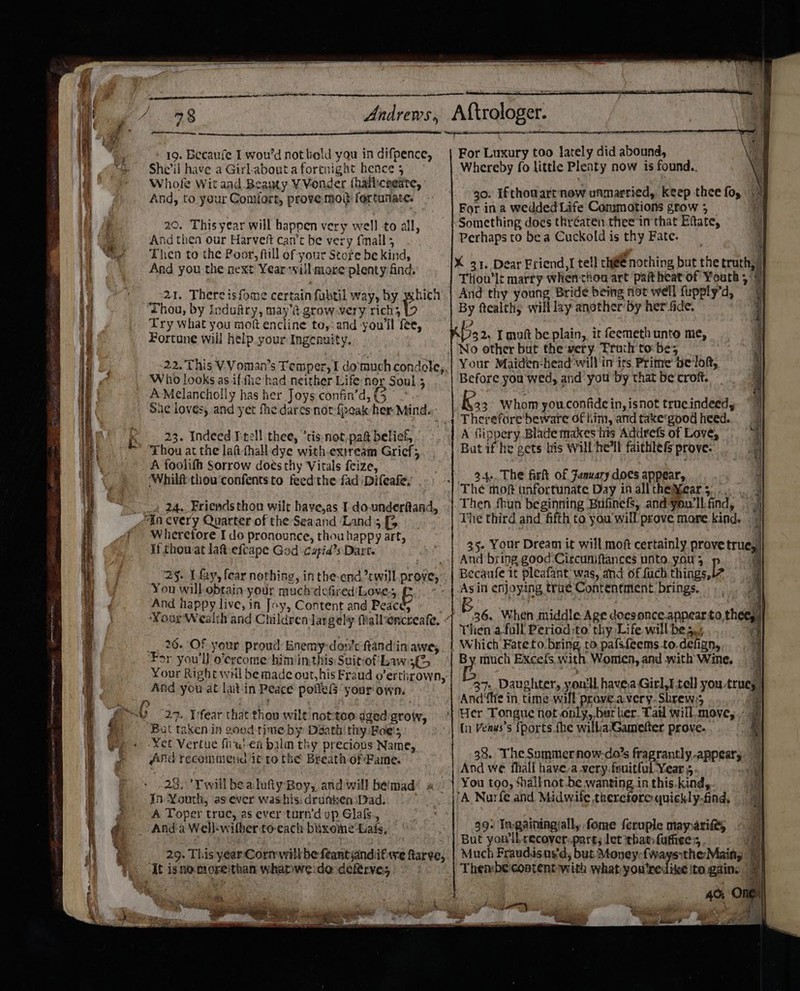 78 Andrews,
19. Becauſe I wou'd not hold you in diſpence,
She'il have a Girl about a fortnight hence;
Whoſe Wit and Beauty VVonder ſhall create,
And, to your Comfort, prove moſt fortunate.
20. This year will happen very well to all,
And then our Harveſt can't be very ſmall;
Then to the Poor, ſtill of your Store be kind,
And you the next Year will more plenty find.
21. There is ſome certain ſubtil way, by which
Thou, by Induſtry, may'ſt grow very rich;
Try what you moſt encline to, and you'll ſee,
Fortune will help your Ingenuity.
22. This VVoman's Temper, I do much condole,
Who looks as if ſhe had neither Life nor Soul;
A Melancholly has her Joys confin'd,
She loves, and yet ſhe dares not ſpeak her Mind.
23. Indeed I tell thee, 'tis not paſt belief,
Thou at the laſt ſhall dye with extream Grief;
A fooliſh Sorrow does thy Vitals ſeize,
Whilſt thou conſents to feed the ſad Diſeaſe.
24. Friends thou wilt have, as I do underſtand,
In every Quarter of the Sea and Land;
Wherefore I do pronounce, thou happy art,
If thou at laſt eſcape God Cupid's Dart.
25. I ſay, fear nothing, in the end 'twill prove,
You will obtain your much deſired Love;
And happy live, in Joy, Content and Peace,
Your Wealth and Children largely ſhall encreaſe.
26. Of your proud Enemy don't ſtand in awe,
For you'll o'ercome him in this Suit of Law;
Your Right will be made out, his Fraud o'erthrown,
And you at laſt in Peace poſſeſs your own.
27. I fear that thou wilt not too aged grow,
But taken in good time by Death thy Foe;
Yet Vertue ſhall en balm thy precious Name,
And recommend it to the Breath of Fame.
28. 'Twill be a luſty Boy, and will be mad
In Youth, as ever was his drunken Dad.
A Toper true, as ever turn'd up Glaſs,
And a Well-wiſher to each buxome Laſs.
29. This year Corn will be ſcant, and if we ſtarve,
It is no more than what we do deſerve;
Aſtrologer.
For Luxury too lately did abound,
Whereby ſo little Plenty now is found.
30. If thou art now unmarried, keep thee ſo,
For in a wedded Life Commotions grow;
Something does threaten thee in that Eſtate,
Perhaps to be a Cuckold is thy Fate.
31. Dear Friend, I tell thee nothing but the truth,
Thou'lt marry when thou art paſt heat of Youth;
And thy young Bride being not well ſupply'd,
By ſtealth, will lay another by her ſide.
32. I muſt be plain, it ſeemeth unto me,
No other but the very Truth to be;
Your Maiden-head will in its Prime be loſt,
Before you wed, and you by that be croſt.
33. Whom you confide in, is not true indeed,
Therefore beware of him, and take good heed.
A ſlippery Blade makes his Addreſs of Love,
But if he gets his Will he'll faithleſs prove.
34. The firſt of January does appear,
The moſt unfortunate Day in all the Year;
Then ſhun beginning Buſineſs, and you'll find,
The third and fifth to you will prove more kind.
35. Your Dream it will moſt certainly prove true,
And bring good Circumſtances unto you;
Becauſe it pleaſant was, and of ſuch things,
As in enjoying true Contentment brings.
36. When middle Age does once appear to thee,
Then a full Period to thy Life will be;
Which Fate to bring to paſs ſeems to deſign,
By much Exceſs with Women, and with Wine.
37. Daughter, you'll have a Girl, I tell you true,
And ſhe in time will prove a very Shrew;
Her Tongue not only, but her Tail will move,
In Venus's ſports ſhe will a Gameſter prove.
38. The Summer now do's fragrantly appear,
And we ſhall have a very fruitful Year;
You too, ſhall not be wanting in this kind,
A Nurſe and Midwife therefore quickly find,
39. In gaining all, ſome ſcruple may ariſe,
But you'll recover part, let that ſuffice;
Much Fraud is us'd, but Money ſways the Main,
Then be content with what you're like to gain.
40. One